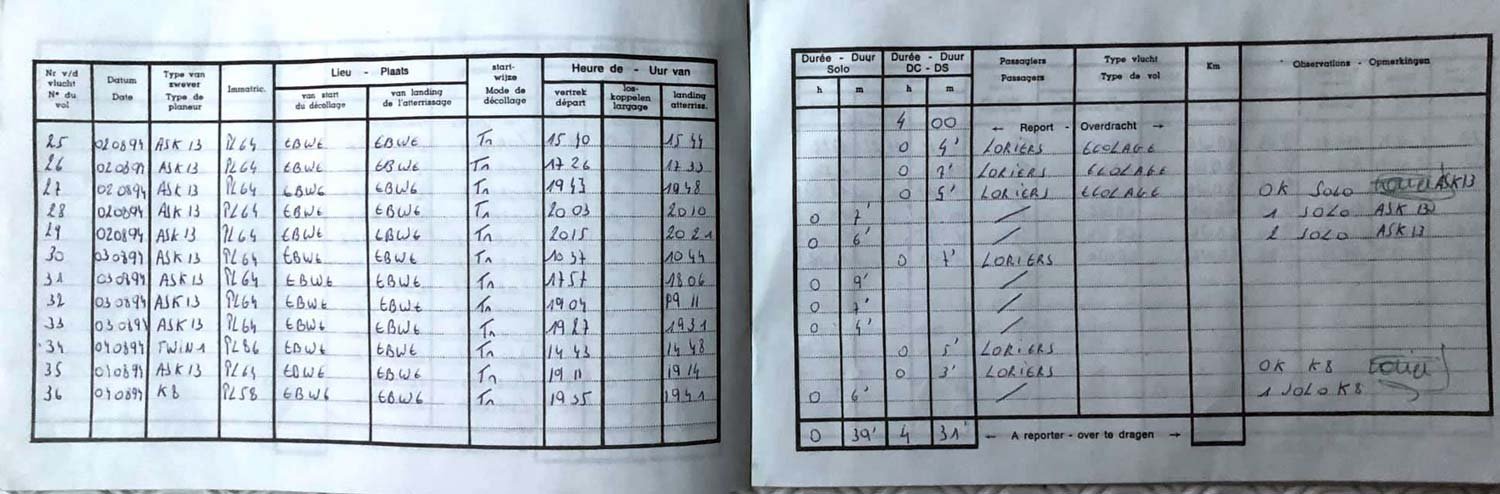 Nr v/d vlucht N° du vol Datum Date Type van zwever Type de planeur Immatric. Lieu - Plaats van start du décollage van landing de l'atterrissage start-wijze Mode de décollage Heure de - Uur van vertrek départ los-koppelen largage landing atterriss.
25 020894 ASK 13 PL64 EBWE EBWE Tn 15 40 15 44
26 020894 ASK 13 PL64 EBWE EBWE Tn 17 26 17 33
27 020894 ASK 13 PL64 EBWE EBWE Tn 19 43 19 48
28 020894 ASK 13 PL64 EBWE EBWE Tn 20 03 20 10
29 020894 ASK 13 PL64 EBWE EBWE Tn 20 15 20 21
30 030894 ASK 13 PL64 EBWE EBWE Tn 10 37 10 44
31 030894 ASK 13 PL64 EBWE EBWE Tn 17 57 18 06
32 030894 ASK 13 PL64 EBWE EBWE Tn 19 04 19 11
33 030894 ASK 13 PL64 EBWE EBWE Tn 19 27 19 31
34 040894 TWIN 1 PL86 EBWE EBWE Tn 14 43 14 48
35 040894 ASK 13 PL64 EBWE EBWE Tn 19 11 19 14
36 040894 K8 PL58 EBWE EBWE Tn 19 35 19 41
Durée - Duur Solo h m Durée - Duur DC - DS h m Passagiers Passagers Type vlucht Type de vol Km Observations - Opmerkingen
4 00 ← Report - Overdracht →
0 4' LORIERS ECOLAGE
0 7' LORIERS ECOLAGE
0 5' LORIERS ECOLAGE OK SOLO ASK13
0 7' / 1 SOLO ASK 13
0 6' / 2 SOLO ASK 13
0 7' LORIERS
0 9' /
0 7' /
0 4' /
0 5' LORIERS
0 3' LORIERS OK K8
0 6' / 1 SOLO K8
0 39' 4 31' ← A reporter - over te dragen →